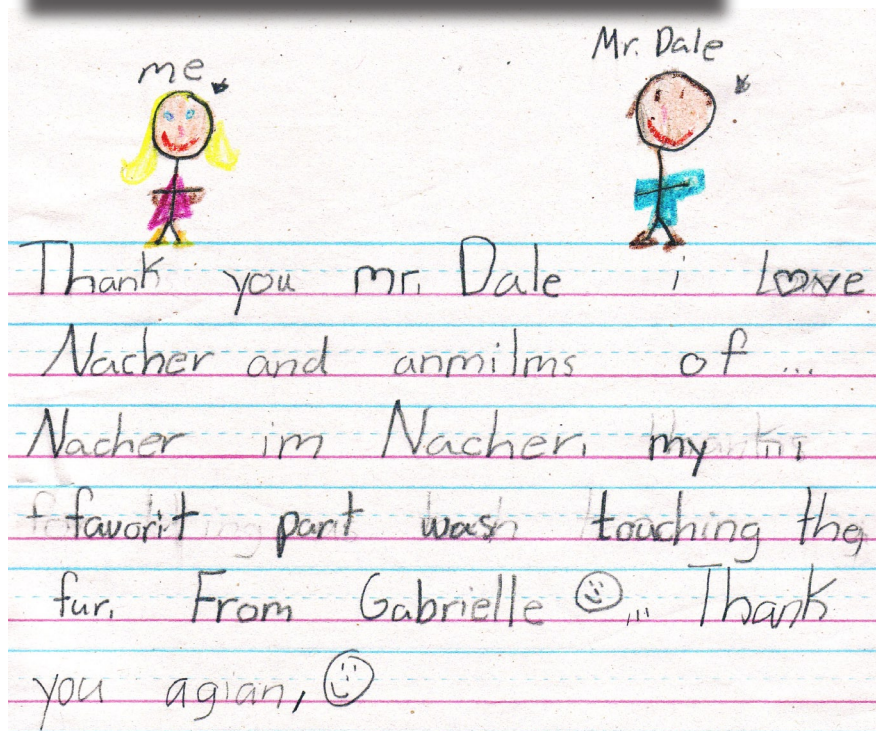 me
Mr. Dale
Thank you mr. Dale i love
Nacher and anmilms of ...
Nacher im Nacher. my
favorit part wash touching the
fur. From Gabrielle ... Thank
you agian,